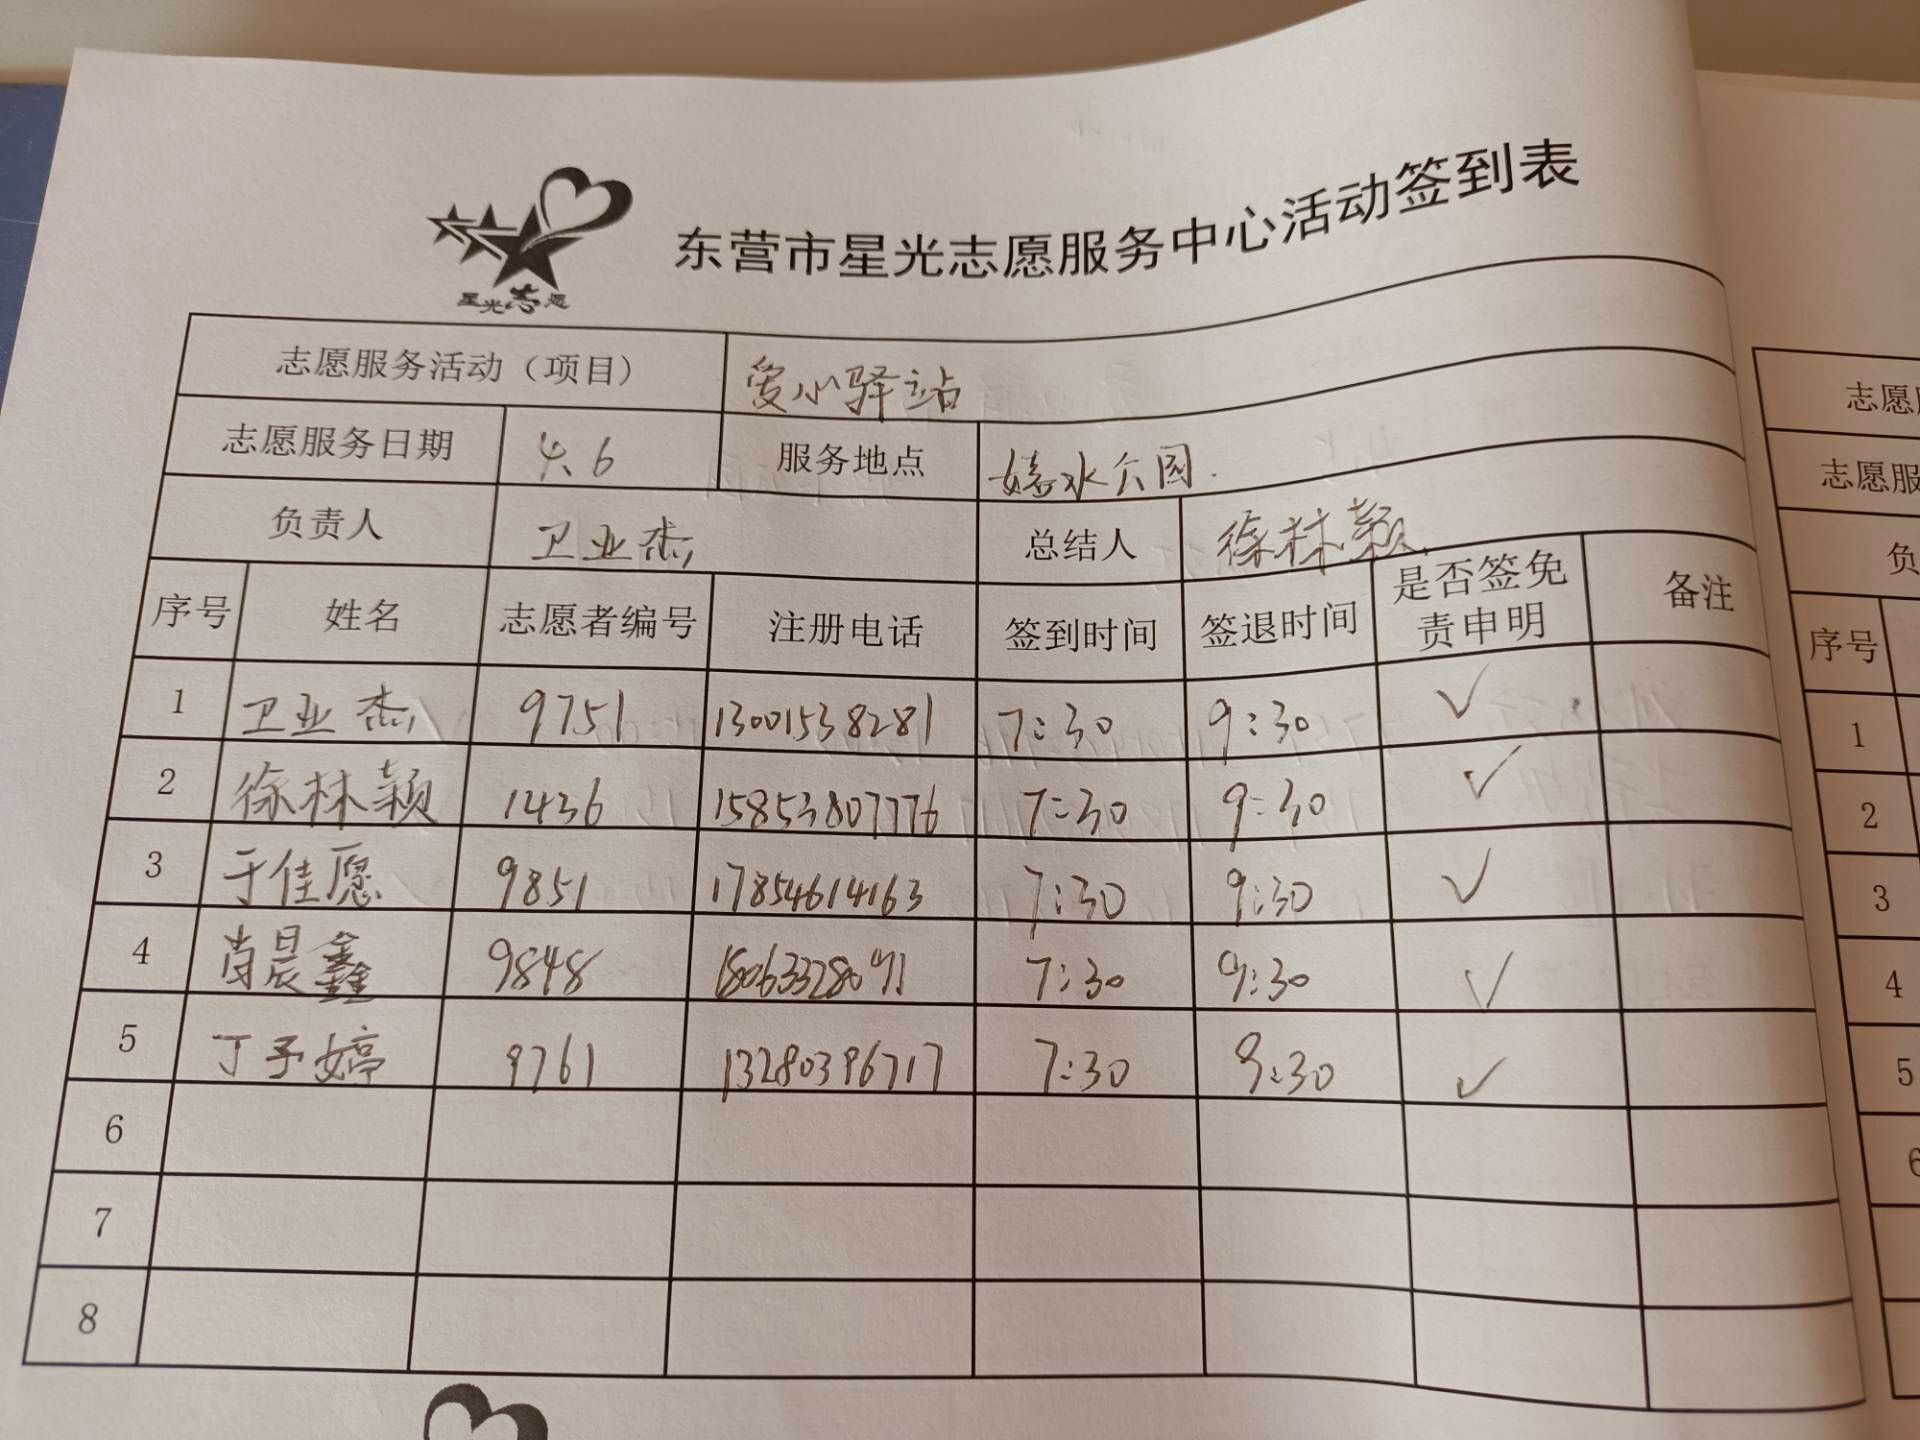 东营市星光志愿服务中心活动签到表
星光志愿
志愿服务活动（项目） 爱心驿站
志愿服务日期 4.6 服务地点 嬉水公园
负责人 卫业杰 总结人 徐林颖
序号 姓名 志愿者编号 注册电话 签到时间 签退时间 是否签免责申明 备注
1 卫业杰 9751 13001538281 7:30 9:30 ✓
2 徐林颖 1436 15853807776 7:30 9:30 ✓
3 于佳愿 9851 17854614163 7:30 9:30 ✓
4 肖晨鑫 9848 7:30 9:30 ✓
5 丁予婷 9761 13280396717 7:30 9:30 ✓
6
7
8
志愿
志愿服
负
序号
1
2
3
4
5
6